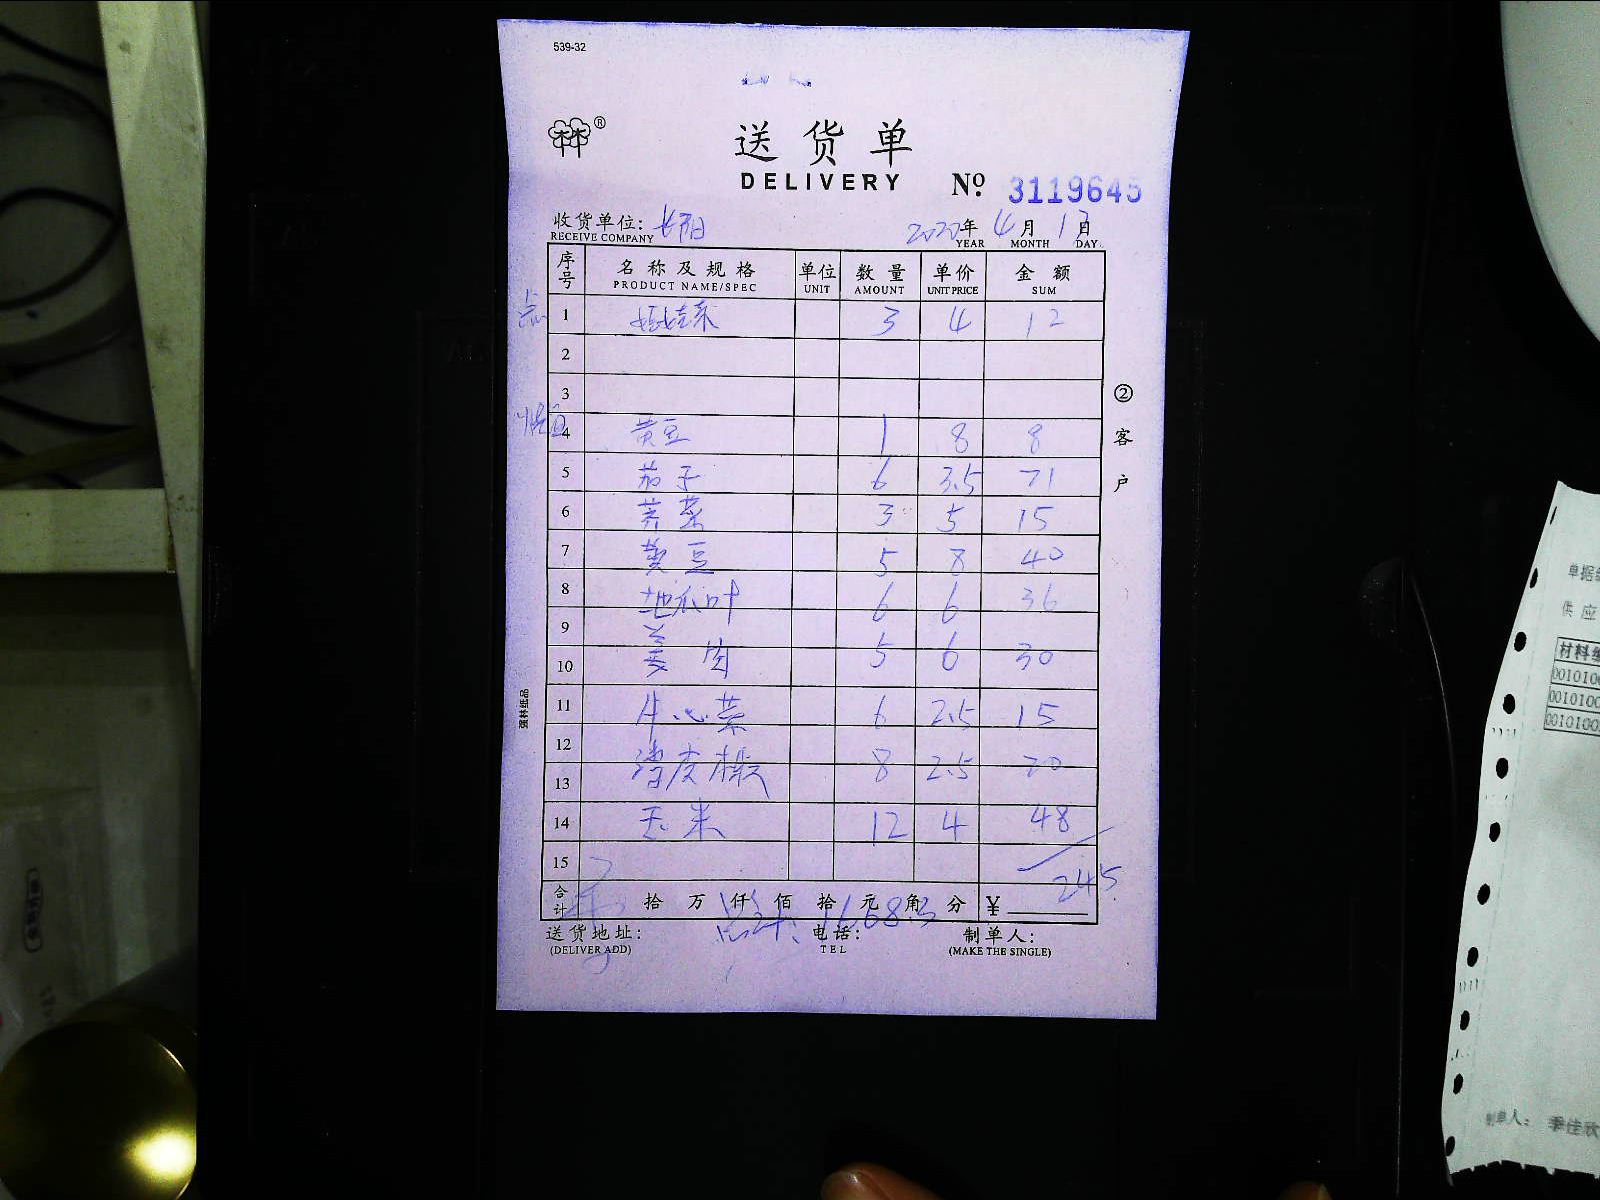 539-32
®
送货单
DELIVERY Nº 3119645
收货单位: 长阳 2020年 4月 13日
RECEIVE COMPANY YEAR MONTH DAY
序号 名称及规格 单位 数量 单价 金额
PRODUCT NAME/SPEC UNIT AMOUNT UNIT PRICE SUM
1 娃娃菜 3 4 12
2
3
4 黄豆 1 8 8
5 茄子 6 3.5 71
6 芥菜 3 5 15
7 黄豆 5 8 40
8 地瓜叶 6 6 36
9
10 姜肉 5 6 30
11 牛心菜 6 2.5 15
12
13 薄皮椒 8 2.5 20
14 玉米 12 4 48
15
245
合计 拾 万 仟 佰 拾 元 角 分 ¥
送货地址: 电话: 制单人:
(DELIVER ADD) TEL (MAKE THE SINGLE)
②客户
强林纸品
单据
供应
材料
001010
001010
001010
制单人: